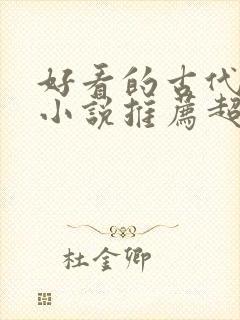 好看的古代
小说推荐超
杜金卿